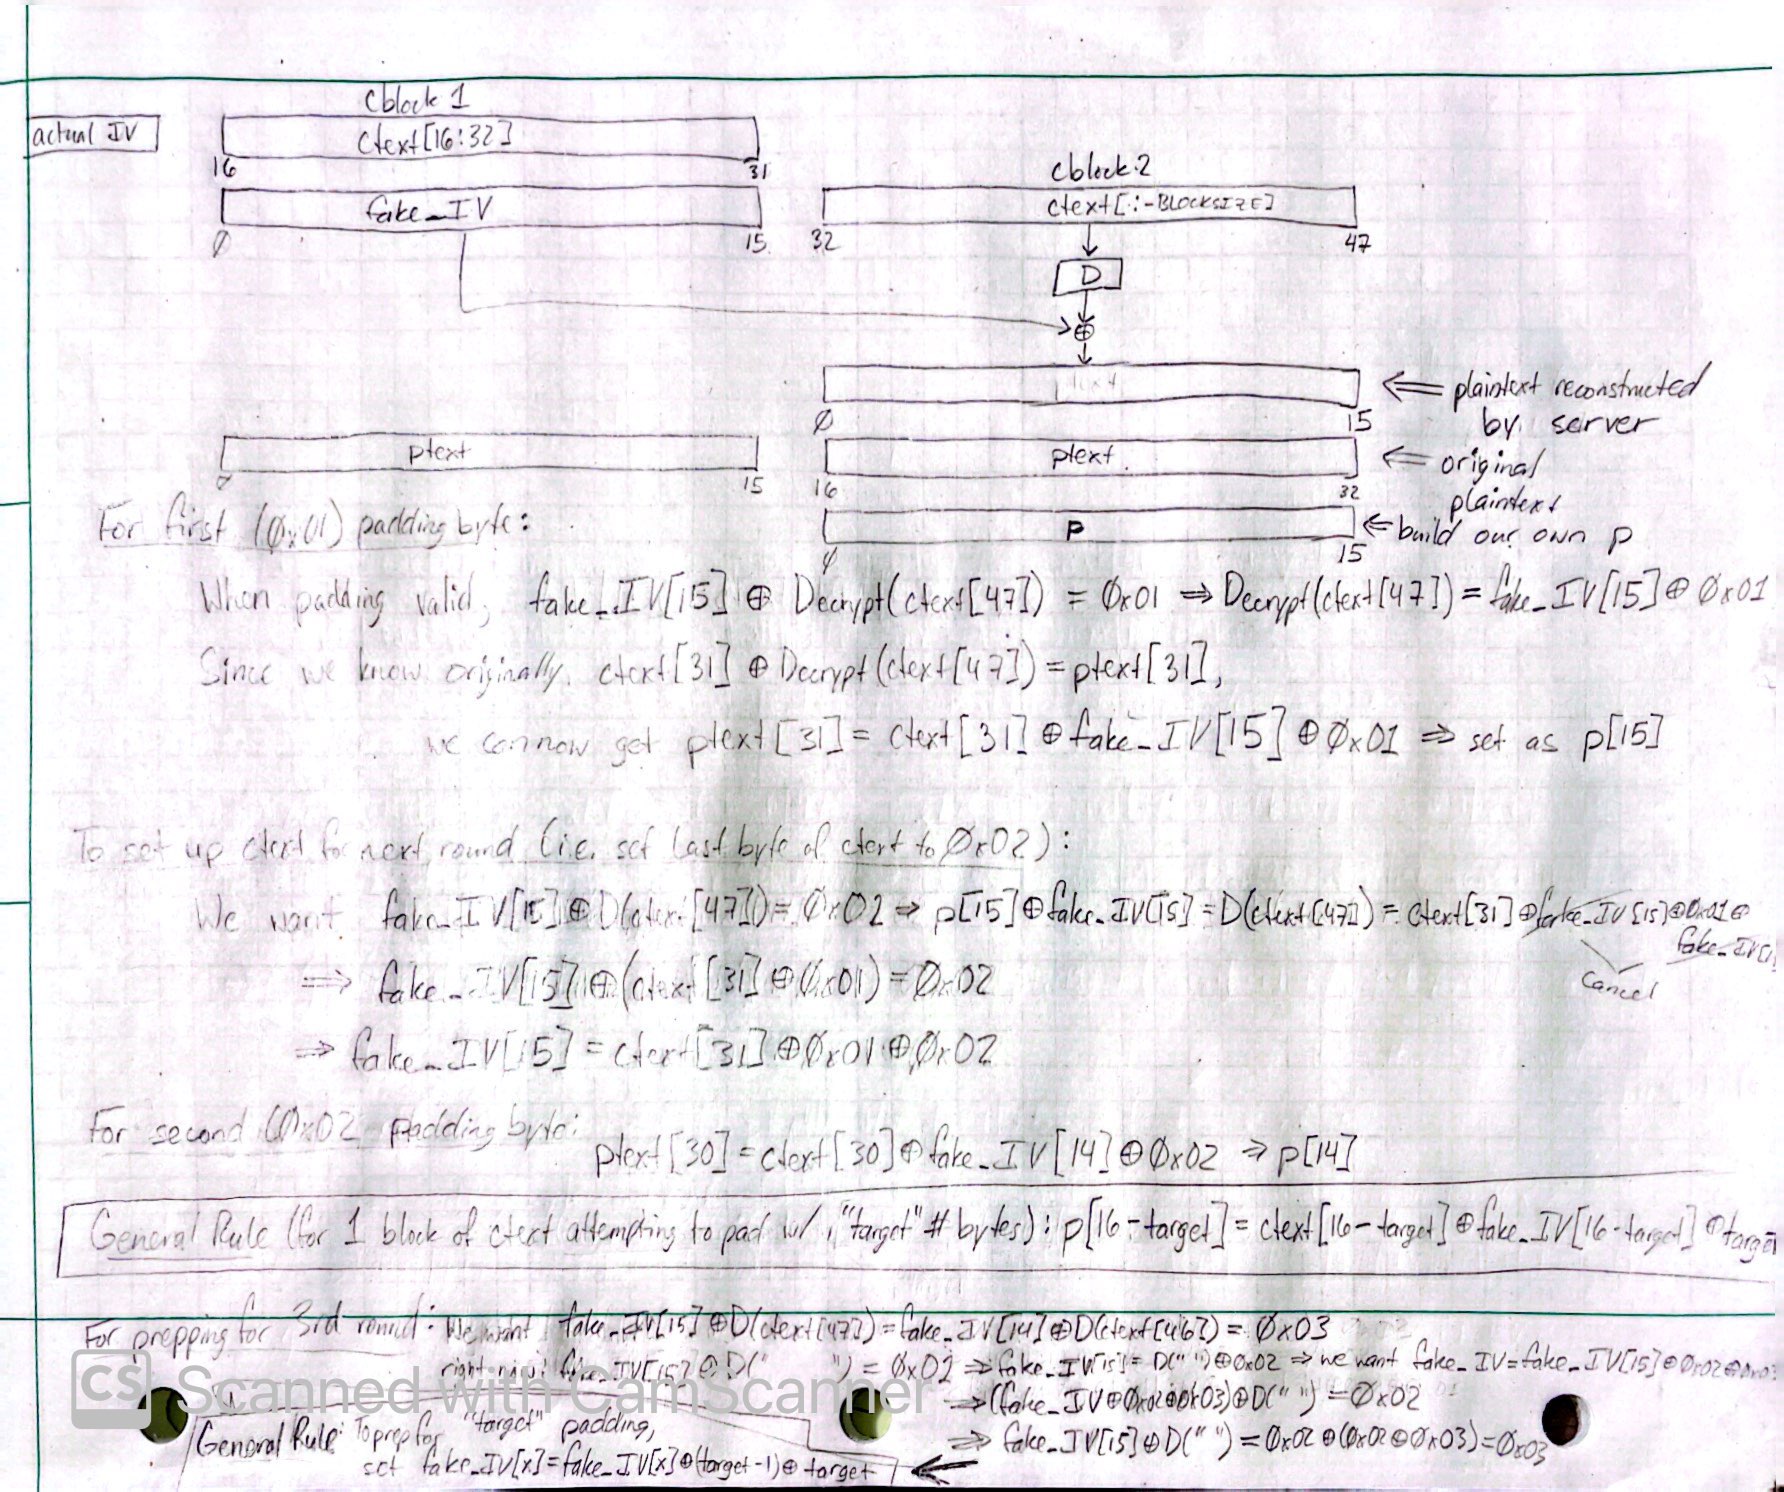 cblock 1
actual IV
ctext[16:32]
16 31
cblock 2
fake_IV
ctext[:-BLOCKSIZE]
Ø 15 32 47
D
⊕
⇐ plaintext reconstructed
by server
Ø 15
ptext ptext
⇐ original
plaintext
15 16 32
p
⇐ build our own p
Ø 15
For first (Øx01) padding byte:
When padding valid, fake_IV[15] ⊕ Decrypt(ctext[47]) = Øx01 ⇒ Decrypt(ctext[47]) = fake_IV[15] ⊕ Øx01
Since we know originally, ctext[31] ⊕ Decrypt(ctext[47]) = ptext[31],
we can now get ptext[31] = ctext[31] ⊕ fake_IV[15] ⊕ Øx01 ⇒ set as p[15]
To set up ctext for next round (i.e. set last byte of ctext to Øx02):
We want fake_IV[15] ⊕ D(ctext[47]) = Øx02 ⇒ p[15] ⊕ fake_IV[15] = D(ctext[47]) = ctext[31] ⊕ fake_IV[15] ⊕ Øx01 ⊕
fake_IV[1
cancel
⇒ fake_IV[15] ⊕ (ctext[31] ⊕ Øx01) = Øx02
⇒ fake_IV[15] = ctext[31] ⊕ Øx01 ⊕ Øx02
For second (Øx02 padding byte:
ptext[30] = ctext[30] ⊕ fake_IV[14] ⊕ Øx02 ⇒ p[14]
General Rule (for 1 block of ctext attempting to pad w/ "target" # bytes): p[16-target] = ctext[16-target] ⊕ fake_IV[16-target] ⊕ target
For prepping for 3rd round: We want fake_IV[15] ⊕ D(ctext[47]) = fake_IV[14] ⊕ D(ctext[46]) = Øx03
right now: fake_IV[15] ⊕ D(" ") = Øx02 ⇒ fake_IV[15] = D(" ") ⊕ Øx02 ⇒ we want fake_IV = fake_IV[15] ⊕ Øx02 ⊕ Øx03
⇒ (fake_IV ⊕ Øx02 ⊕ Øx03) ⊕ D(" ") = Øx02
⇒ fake_IV[15] ⊕ D(" ") = Øx02 ⊕ (Øx02 ⊕ Øx03) = Øx03
General Rule: To prep for "target" padding,
set fake_IV[x] = fake_IV[x] ⊕ (target-1) ⊕ target
CS Scanned with CamScanner